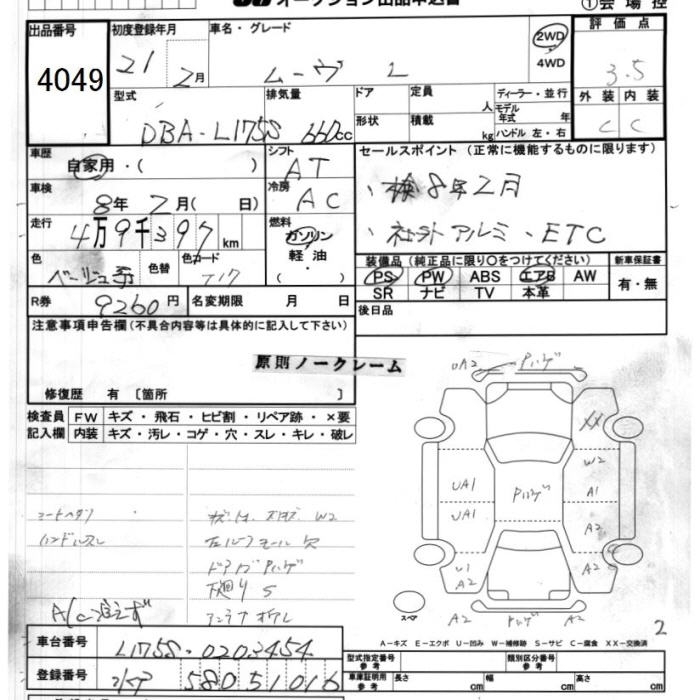 オークション出品申込書
①会場控
出品番号
4049
初度登録年月
21 2月
車名・グレード
ムーヴ L
2WD
4WD
評価点
3.5
型式
DBA-L175S
排気量
660cc
ドア
形状
定員 人
積載 kg
ディーラー・並行
モデル年式 年
ハンドル 左・右
外装 内装
C C
車歴
自家用・( )
シフト
AT
車検
8年 2月( 日)
冷房
AC
走行
4万9千397km
燃料
ガソリン
軽油
・( )
色
ベージュ系
色替
色コード
T17
R券
9260円
名変期限 月 日
セールスポイント(正常に機能するものに限ります)
、検8年2月
、社外アルミ・ETC
装備品(純正品に限り○をつけてください)
PS PW ABS エアB AW
SR ナビ TV 本革
新車保証書
有・無
後日品
注意事項申告欄(不具合内容等は具体的に記入して下さい)
原則ノークレーム
修復歴 有 〔箇所 〕
検査員記入欄
FW キズ・飛石・ヒビ割・リペア跡・×要
内装 キズ・汚レ・コゲ・穴・スレ・キレ・破レ
UA2
XX
W2
UA1 A1
UA1 A2
U1
A2 A2
ハンドルスレ
W2
下廻りS
スペア
A2 A2
2
A-キズ E-エクボ U-凹み W-補修跡 S-サビ C-腐食 XX-交換済
車台番号
L175S-0203454
登録番号
580 51016
型式指定番号 参考
類別区分番号 参考
車庫証明用 参考
長さ cm 幅 cm 高さ cm